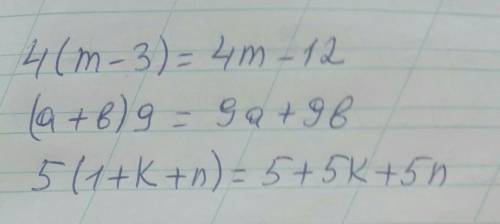 4(m-3)=4m-12
(a+b)9=9a+9b
5(1+k+n)=5+5k+5n